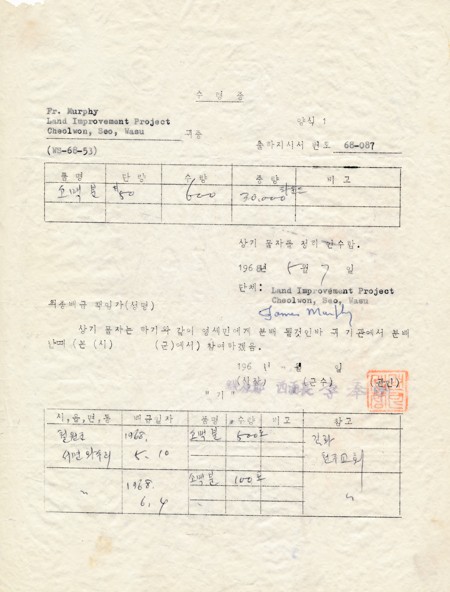 수 령 증
Fr. Murphy
Land Improvement Project
Cheolwon, Seo, Wasu 귀중
(WB-68-53)
양식 1
출자지시서 번호 68-087
품 명 단 량 수 량 중 량 비 고
소맥분 50 600 30,000
상기 물자를 정히 인수함.
1968년 5월 7일
단체: Land Improvement Project
Cheolwon, Seo, Wasu
James Murphy
최종배급 책임자(성명)
상기 물자는 하기와 같이 영세민에게 분배 될것인바 귀 기관에서 분배
난때 (본 (시) (군)에서) 참여하겠음.
196 년 월 일
(시장) (군수) (관인)
"기"
시,읍,면,동 배급일자 품명 수량 비고 참고
철원군 1968. 소맥분 500포
서면 와수리 5. 10 천주교회
" 1968. 소맥분 100포 "
6. 4